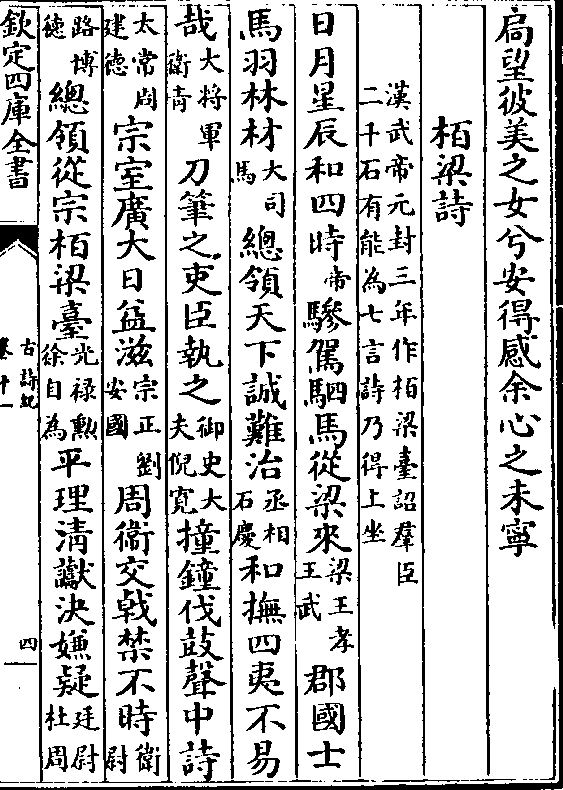 扃望彼美之女兮安得感余心之未寧
栢梁詩
漢武帝元封三年作栢梁臺詔羣臣
二千石有能為七言詩乃得上坐
日月星辰和四時帝驂駕駟馬從梁來梁王孝王武郡國士
馬羽林材大司馬總領天下誠難治丞相石慶和撫四夷不易
哉大將軍衛青刀筆之吏臣執之御史大夫倪寛撞鐘伐鼓聲中詩
太常周建德宗室廣大日益滋宗正劉安國周衛交戟禁不時衛尉
路博德總領從宗栢梁臺光禄勲徐自為平理清讞決嫌疑廷尉杜周
欽定四庫全書
古詩紀
卷十一
四